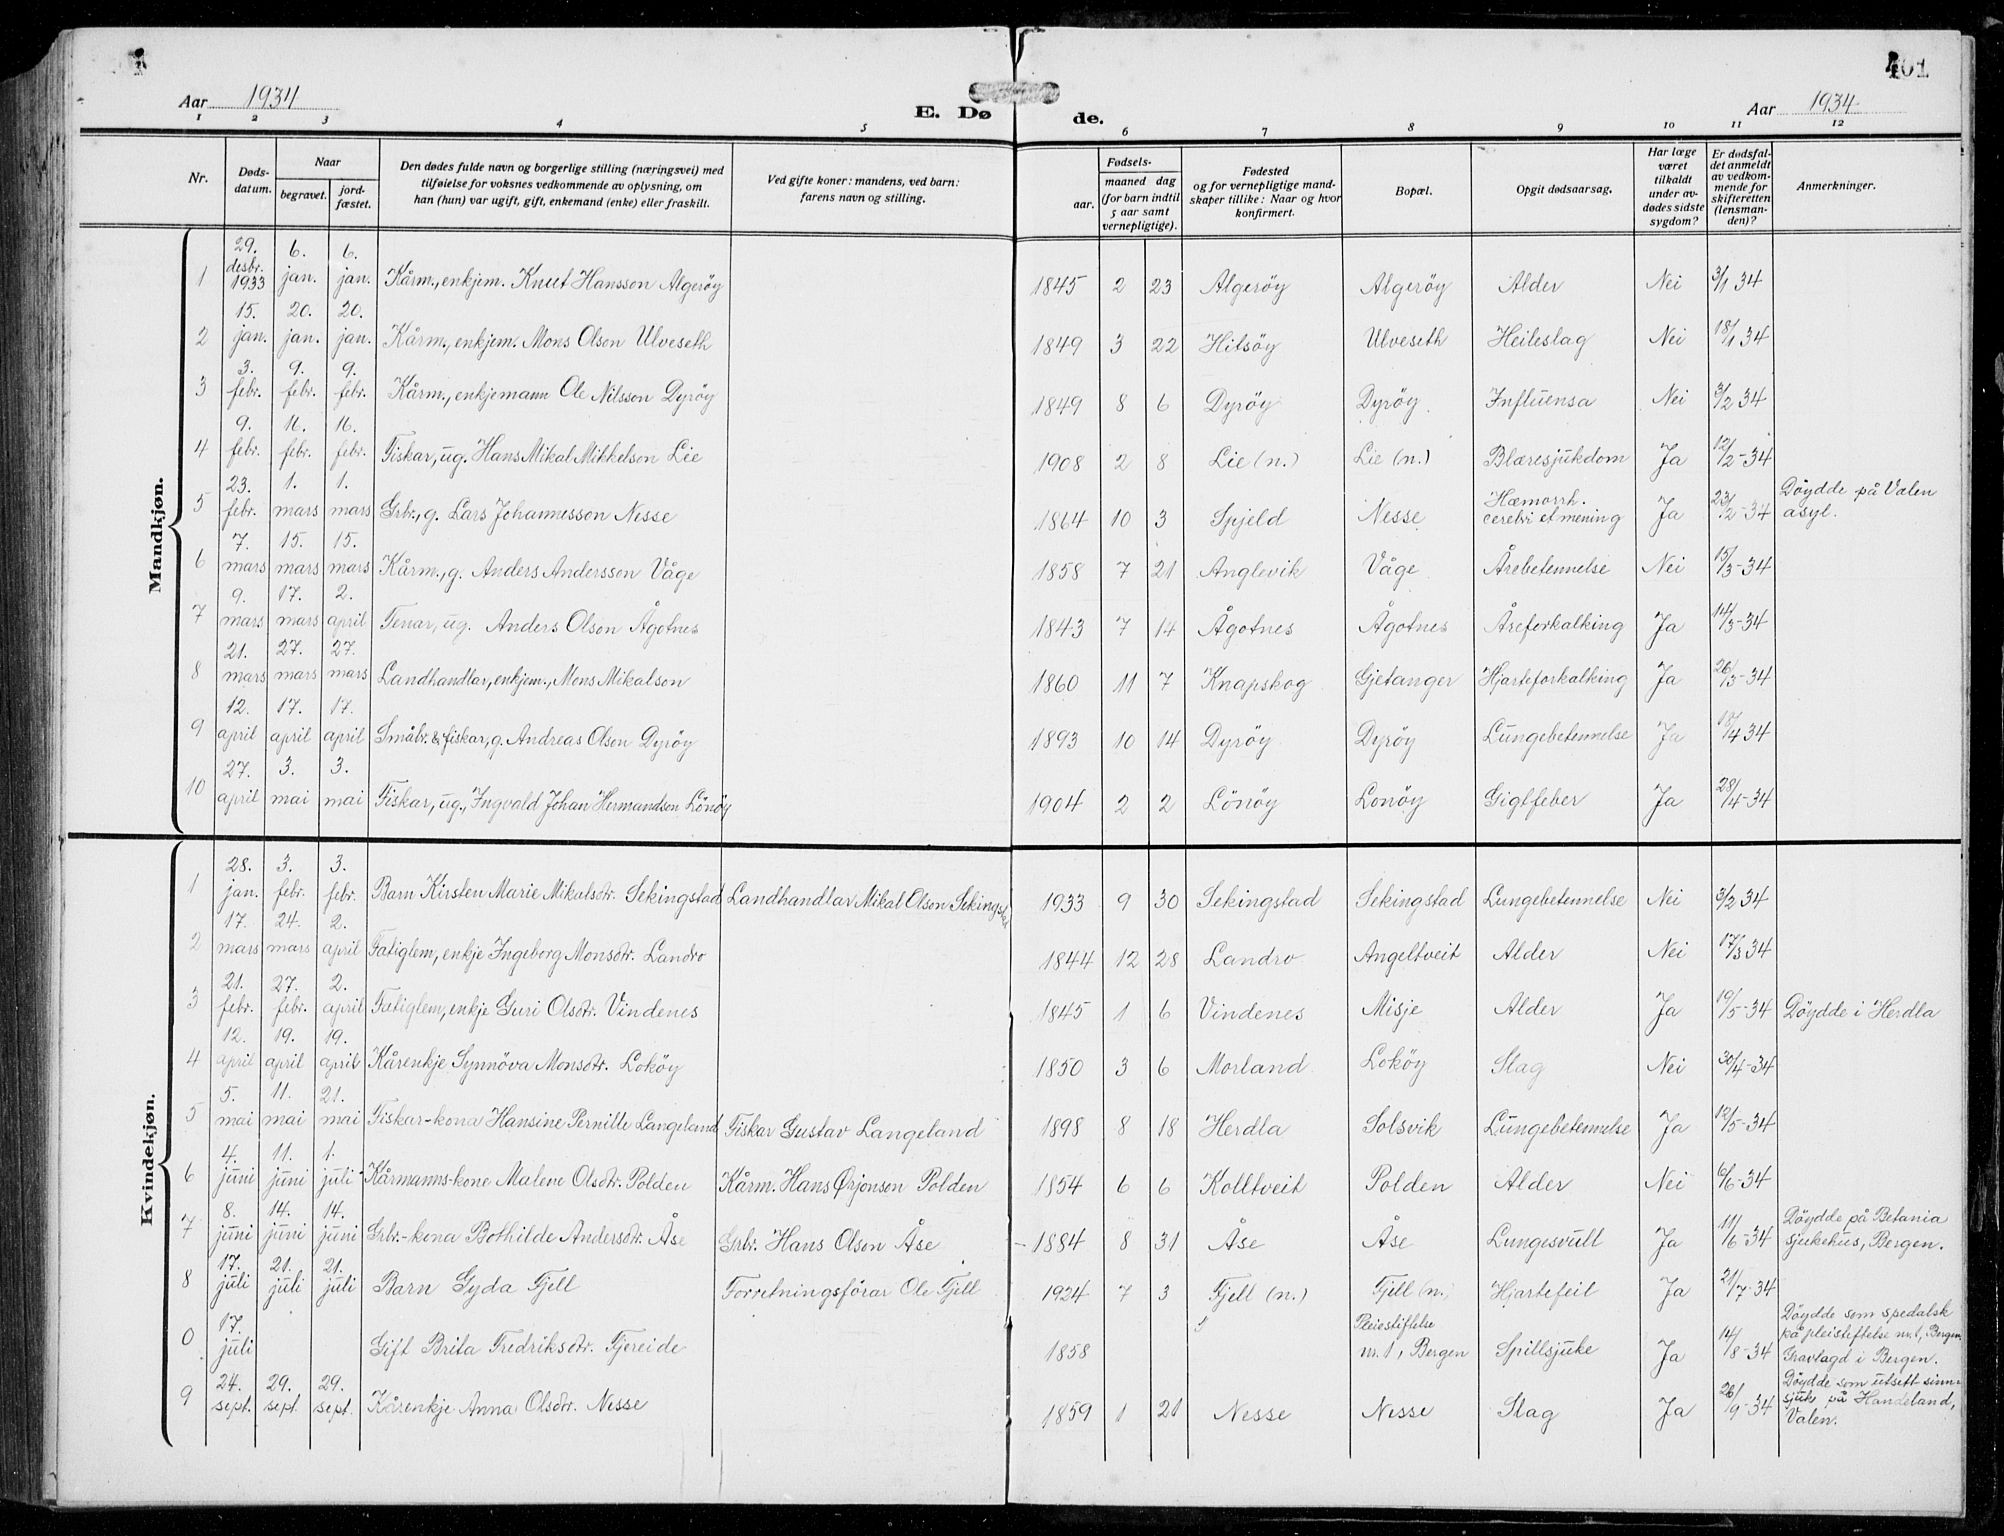 401
Aar 1934
E. Døde.
Aar 1934
1 2 3 4 5 6 7 8 9 10 11 12
Nr.
Døds-datum.
Naar
begravet.
jord-fæstet.
Den dødes fulde navn og borgerlige stilling (næringsvei) med
tilføielse for voksnes vedkommende av oplysning, om
han (hun) var ugift, gift, enkemand (enke) eller fraskilt.
Ved gifte koner: mandens, ved barn:
farens navn og stilling.
Fødsels-
aar.
maaned dag
(for barn indtil
5 aar samt
vernepligtige).
Fødested
og for vernepligtige mand-
skaper tillike: Naar og hvor
konfirmert.
Bopæl.
Opgit dødsaarsag.
Har læge
været
tilkaldt
under av-
dødes sidste
sygdom?
Er dødsfal-
det anmeldt
av vedkom-
mende for
skifteretten
(lensman-
den)?
Anmerkninger.
Mandkjøn.
1 29. desbr. 1933 6. jan. 6. jan. Kårm., enkjem. Knut Hansson Algerøy 1845 2 23 Algerøy Algerøy Alder Nei 3/1 34
2 15. jan. 20. jan. 20. jan. Kårm., enkjem. Mons Olson Ulveseth 1849 3 22 Hitsöy Ulveseth Heileslag Nei 18/1 34
3 3. febr. 9. febr. 9. febr. Kårm., enkjemann Ole Nilsson Dyröy 1849 8 6 Dyröy Dyröy Influensa Nei 3/2 34
4 9. febr. 16. febr. 16. febr. Fiskar, ug. Hans Mikal Mikkelson Lie 1908 2 8 Lie (n.) Lie (n.) Blæresjukdom Ja 12/2-34
5 23. febr. 1. mars 1. mars Grbr., g. Lars Johannesson Nesse 1864 10 3 Spjeld Nesse Hæmorrh. cerebri et mening Ja 23/2-34 Döydde på Valen asyl.
6 7. mars 15. mars 15. mars Kårm., g. Anders Andersson Våge 1858 7 21 Anglevik Våge Årebetennelse Nei 15/3-34
7 9. mars 17. mars 2. april Tenar, ug. Anders Olson Ågotnes 1843 7 14 Ågotnes Ågotnes Åreforkalking Ja 14/3-34
8 21. mars 27. mars 27. mars Landhandlar, enkjem., Mons Mikalson 1860 11 7 Knapskog Gjetanger Hjarteforkalking Ja 26/3-34
9 12. april 17. april 17. april Småbr. & fiskar, g. Andreas Olson Dyröy 1893 10 14 Dyröy Dyröy Lungebetennelse Ja 18/4 34
10 27. april 3. mai 3. mai Fiskar, ug., Ingvald Johan Hermandson Lönöy 1904 2 2 Lönöy Lonöy Gigtfeber Ja 28/4-34
Kvindekjøn.
1 28. jan. 3. febr. 3. febr. Barn Kirsten Marie Mikalsdtr. Sekingstad Landhandlar Mikal Olson Sekingstad 1933 9 30 Sekingstad Sekingstad Lungebetennelse Nei 3/2 34
2 17. mars 24. mars 2. april Fatiglem, enkje Ingeborg Monsdtr. Landro 1844 12 28 Landro Angeltveit Alder Nei 17/3 34
3 21. febr. 27. febr. 2. april Fatiglem, enkje Guri Olsdtr. Vindenes 1845 1 6 Vindenes Misje Alder Ja 19/5-34 Döydde i Herdla
4 12. april 19. april 19. april Kårenkje Synnöva Monsdtr. Loköy 1850 3 6 Morland Loköy Slag Nei 30/4-34
5 5. mai 11. mai 21. mai Fiskar-kona Hansine Pernille Langeland Fiskar Gustav Langeland 1898 8 18 Herdla Solsvik Lungebetennelse Ja 12/5-34
6 4. juni 11. juni 1. juli Kårmanns-kone Malene Olsdtr. Polden Kårm. Hans Ørjonson Polden 1854 6 6 Kolltveit Polden Alder Nei 6/6-34
7 8. juni 14. juni 14. juni Grbr.-kona Bothilde Andersdtr. Åse Grbr. Hans Olson Åse 1884 8 31 Åse Åse Lungesvult Ja 11/6-34 Döydde på Betania sjukehus, Bergen.
8 17. juli 21. juli 21. juli Barn Gyda Fjell Forretningsförar Ole Fjell 1924 7 3 Fjell (n.) Fjell (n.) Hjartefeil Ja 21/7-34
0 17. juli Gift Brita Fredriksdtr. Fjereide 1858 Pleiestiftelse nr. 1, Bergen Spillsjuke Ja 14/8-34 Döydde som spedalsk på pleistiftelse nr. 1, Bergen. Gravlagd i Bergen.
9 24. sept. 29. sept. 29. sept. Kårenkje Anna Olsdtr. Nesse 1859 1 21 Nesse Nesse Slag Ja 26/9-34 Döydde som utsett sinnsjuk på Handeland, Valen.